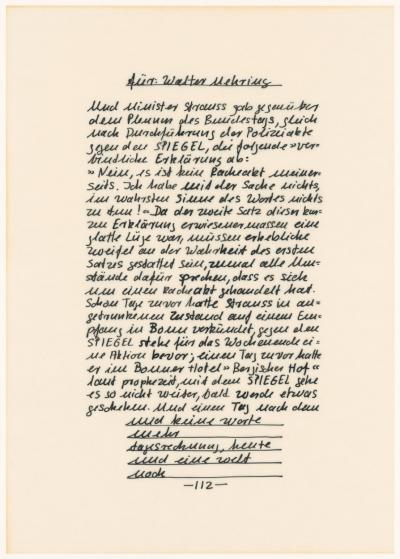 für: Walter Mehring
Und Minister Strauss gab gegenüber
dem Plenum des Bundestags, gleich
nach Durchführung der Polizeiakte
gegen den SPIEGEL, die folgende »ver-
bindliche Erklärung ab:
» Nein, es ist kein Racheakt meiner-
seits. Ich habe mit der Sache nichts,
im wahrsten Sinne des Wortes nichts
zu tun!« Da der zweite Satz dieser kur-
zen Erklärung erwiesenermassen eine
glatte Lüge war, müssen erhebliche
zweifel an der Wahrheit des ersten
Satzes gestattet sein, zumal alle Um-
stände dafür sprechen, dass es sich
um einen Racheakt gehandelt hat.
Schon Tage zuvor hatte Strauss in an-
getrunkenem Zustand auf einem Em-
pfang in Bonn verkündet, gegen den
SPIEGEL stehe für das Wochenende ei-
ne Aktion bevor; einen Tag zuvor hatte
er im Bonner Hotel »Bergischer Hof«
laut prophezeit, mit dem SPIEGEL gehe
es so nicht weiter, bald werde etwas
geschehen. Und einen Tag nach dem
und keine worte
mehr
tagesrechnung, heute
und eine welt
noch
—112—